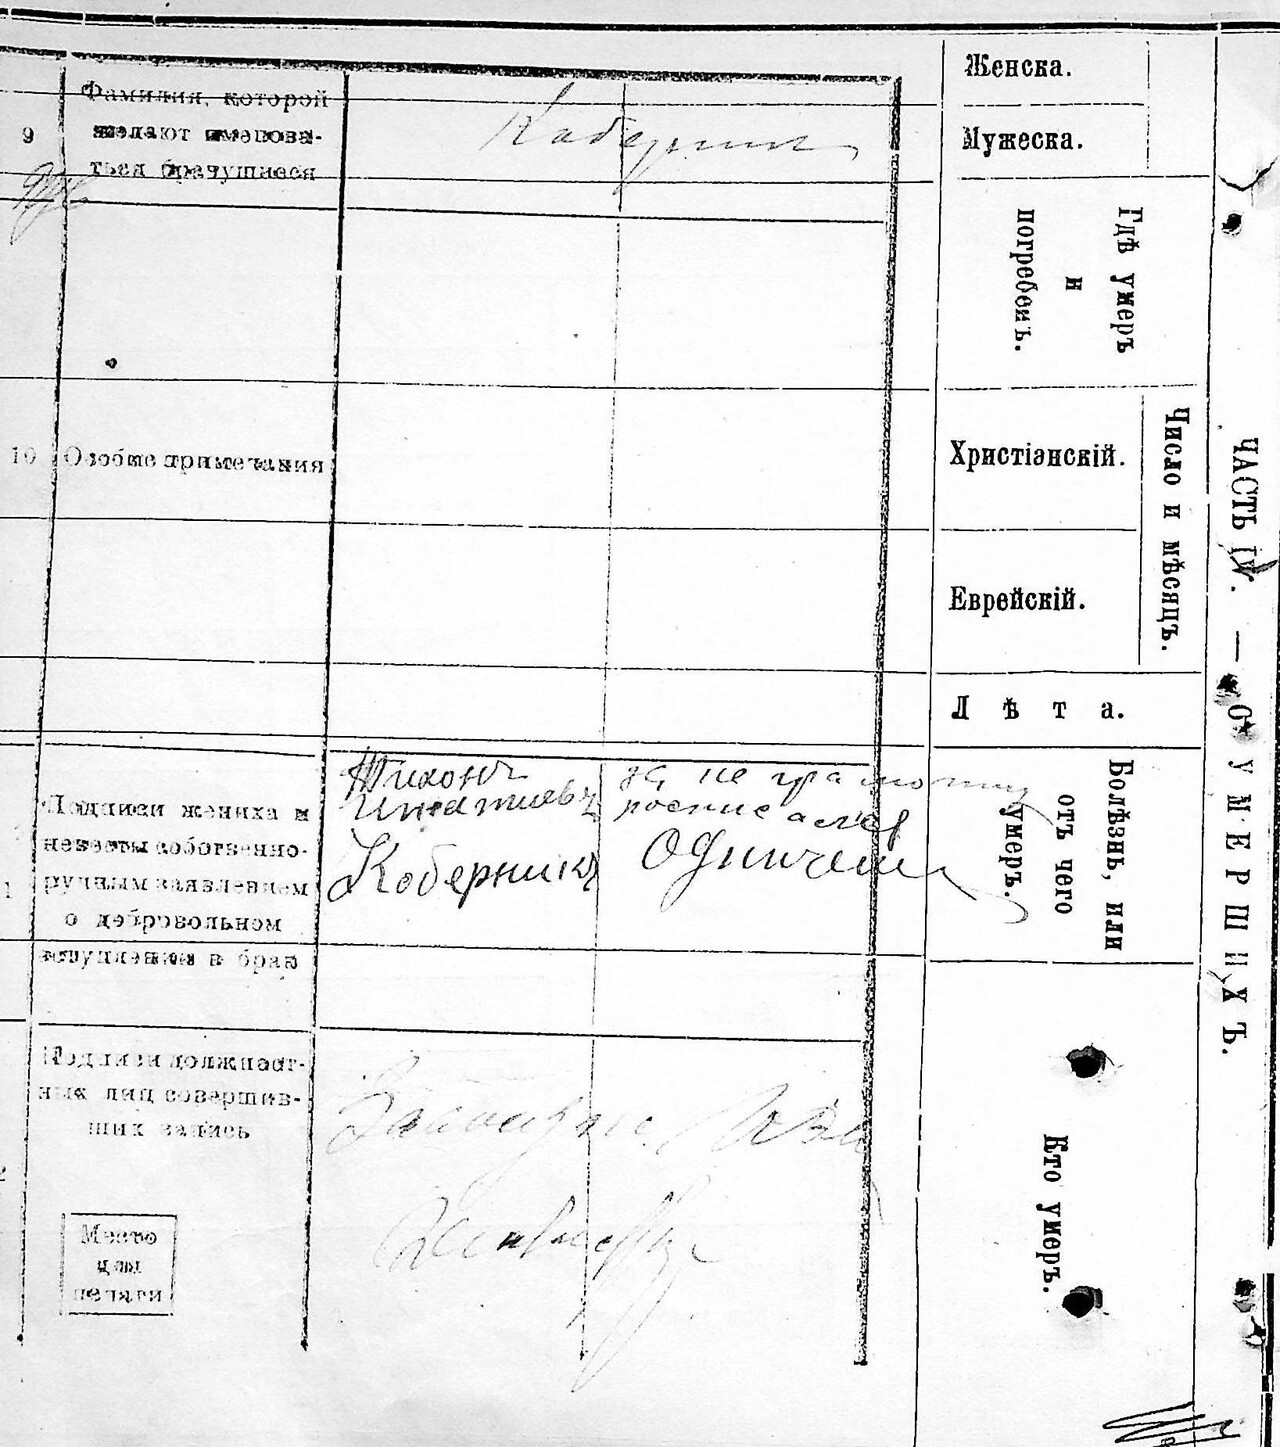 9
Фамилия, которой
желают именова-
ться брачущиеся
10
Особые примечания
Подписи жениха и
невесты собственно-
ручным заявлением
о добровольном
вступлении в брак
Тихонъ
Коберникъ
за не грамотну
росписался
Подписи должност-
ных лиц совершив-
ших запись
Место
для
печати
Женска.
Мужеска.
Гдѣ умеръ
и
погребенъ.
Христіанскій.
Еврейскій.
Число и мѣсяцъ.
Лѣта.
Болѣзнь, или
отъ чего
умеръ.
Кто умеръ.
ЧАСТЬ IV. — О УМЕРШИХЪ.